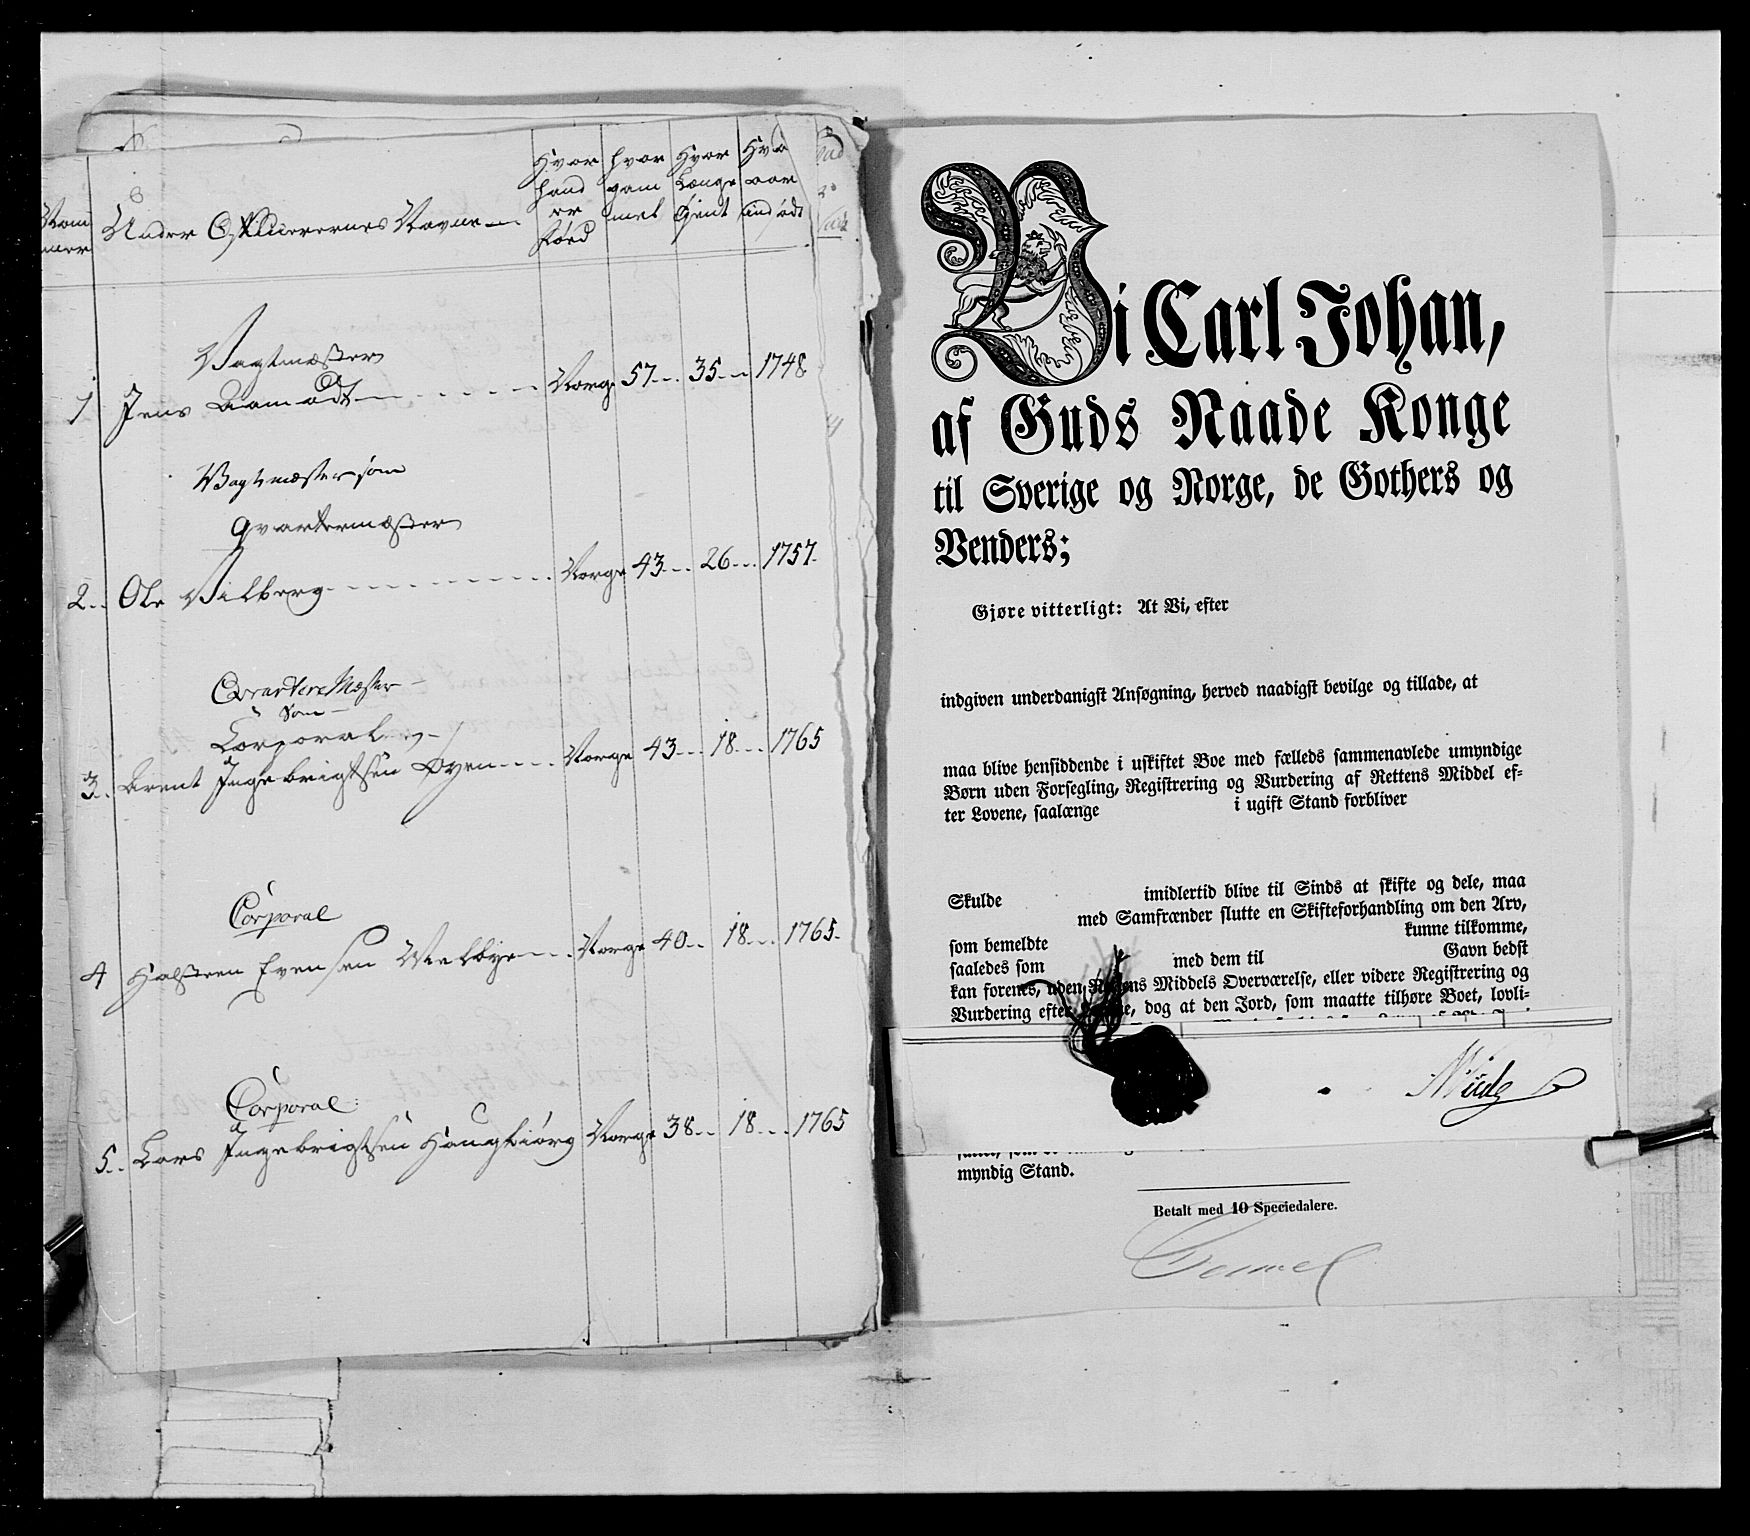 Num
mer
Under Officierernes Navne
Hvor
hand
er
fød
hvor
gam
mel
Hvor
længe
tient
1
Vagtmæster
Jens Aamodt
Norge
57
35
1748
Vagtmæster som
Qvartermæster
2
Ole Vilberg
Norge
43
26
1757
Qvarteer Mæster
som
Corporal
3
Arent Ingebrigtsen Øyen
Norge
43
18
1765
Corporal
4
Halsteen Evensen Melbye
Norge
40
18
1765
Corporal
5
Lars Ingebrigtsen Haugbiörg
Norge
38
18
1765
Vi Carl Johan,
af Guds Naade Konge
til Sverige og Norge, de Gothers og
Venders;
Gjøre vitterligt: At Vi, efter
indgiven underdanigst Ansøgning, herved naadigst bevilge og tillade, at
maa blive hensiddende i uskiftet Boe med fælleds sammenavlede umyndige
Børn uden Forsegling, Registrering og Vurdering af Rettens Middel ef-
ter Lovene, saalænge i ugift Stand forbliver
Skulde imidlertid blive til Sinds at skifte og dele, maa
med Samfrænder slutte en Skifteforhandling om den Arv,
som bemeldte kunne tilkomme,
saaledes som med dem til Gavn bedst
kan forenes, uden Rettens Middels Overværelse, eller videre Registrering og
Vurdering efter dog at den Jord, som maatte tilhøre Boet, lovli-
myndig Stand.
Betalt med 10 Speciedalere.